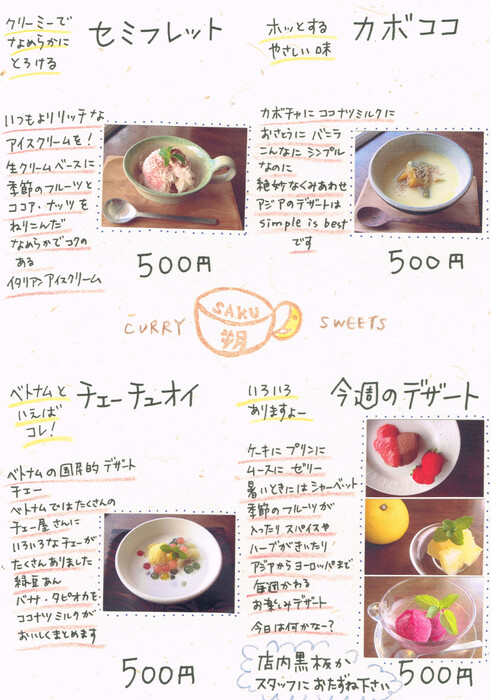 クリーミーで
なめらかに
とろける
セミフレット
いつもよりリッチな
アイスクリームを!
生クリームベースに
季節のフルーツと
ココア・ナッツを
ねりこんだ
なめらかでコクの
ある
イタリアンアイスクリーム
500円
ホッとする
やさしい味
カボココ
カボチャに ココナツミルクに
おさとうに バニラ
こんなに シンプル
なのに
絶妙なくみあわせ
アジアのデザートは
simple is best
です
500円
CURRY
SAKU
朔
SWEETS
ベトナムと
いえば
コレ!
チェーチュオイ
ベトナムの国民的デザート
チェー
ベトナムではたくさんの
チェー屋さんに
いろいろなチェーが
たくさんありました
緑豆あん
バナナ・タピオカを
ココナツミルクが
おいしくまとめます
500円
いろいろ
ありますよー
今週のデザート
ケーキに プリンに
ムースに ゼリー
暑いときにはシャーベット
季節のフルーツが
入ったり スパイスや
ハーブがきいたり
アジアからヨーロッパまで
毎週かわる
お楽しみデザート
今日は何かな~?
店内黒板か
スタッフにおたずね下さい
500円